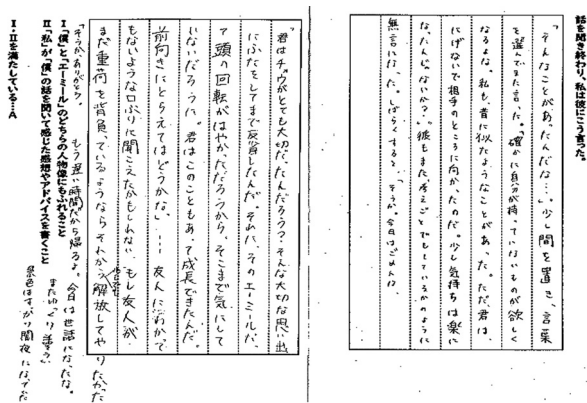 話を聞き終わり、私は彼にこう言った。
「そんなことがあったんだな…。」少し間を置き、言葉
を選んでまた言った。「確かに自分が持っていないものが欲しく
なるよな。私も昔に似たようなことがあった。ただ、君は
にげないで相手のところに向かったのだ。少し気持ちは楽に
な たんじゃないか?」彼もまた、考えごとでもしているかのように
無言になった。しばらくすると、「そうか。今日はごめんな。
「君はチョウがとても大切だったんだろう?そんな大切な思い出
にふたをしてまで反省したんだ。それに、そのエーミールだ
って頭の回転がはやかっただろうから、そこまで気にして
いないだろうに。君はこのこともあって成長できたんだ。
前向きにとらえてはどうかな。」… 友人に
もないような口ぶりに聞こえたかもしれない。もし友人が
まだ重荷を背負っているようならそれから解放してやりたかった
「そうか、ありがとう。 もう遅い時間だから帰るよ。今日は世話になったな。
またゆっくり 話そう」
景色はすっかり闇夜に
Ⅰ「僕」と「エーミール」のどちらの人物像にもふれること
Ⅱ「私」が「僕」の話を聞いて感じた感想やアドバイスを書くこと
Ⅰ・Ⅱを満たしている…A